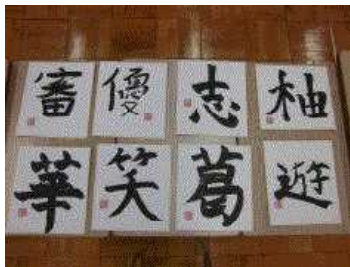 審 優 志 柚
華 笑 葛 遊